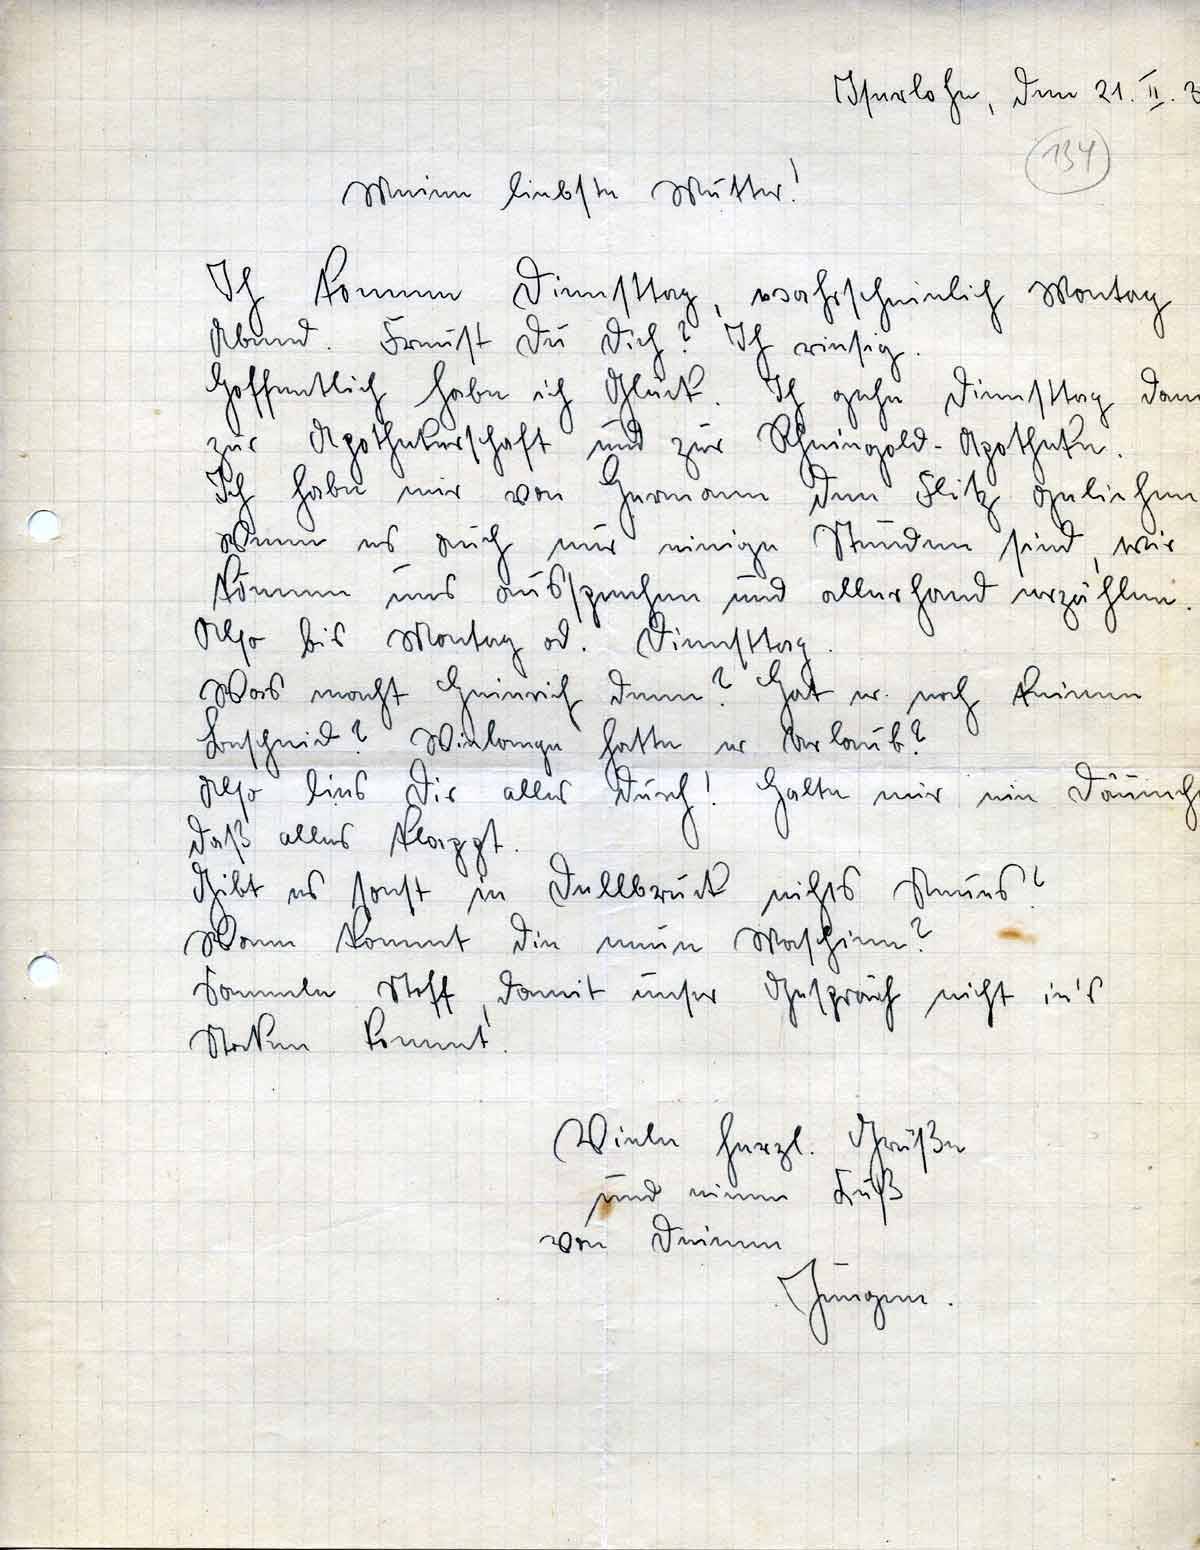 Iserlohn, den 21. II. 3
134
Meine liebste Mutter!
Ich komme Diensttag, wahrscheinlich Montag
Abend. Freust Du Dich? Ich riesig.
Hoffentlich habe ich Glück. Ich gehe Diensttag dann
zur Apothekerschaft und zur Rheingold-Apotheke.
Ich habe mir von Hermann den Flitz geliehen
Wenn es auch nur einige Stunden sind, wir
können uns aussprechen und allerhand erzählen.
Also bis Montag od. Diensttag.
Was macht Heinrich denn? Hat er noch keinen
Bescheid? Wielange hatte er Urlaub?
Also lies Dir alles durch! Halte mir ein Däumchen
daß alles klappt.
Gibt es sonst in Dellbrück nichts Neues?
Wann kommt die neue Maschine?
Sammele Stoff, damit unser Gespräch nicht in's
Stocken kommt!
Viele herzl. Grüße
und einen Kuß
von Deinem
Jürgen.